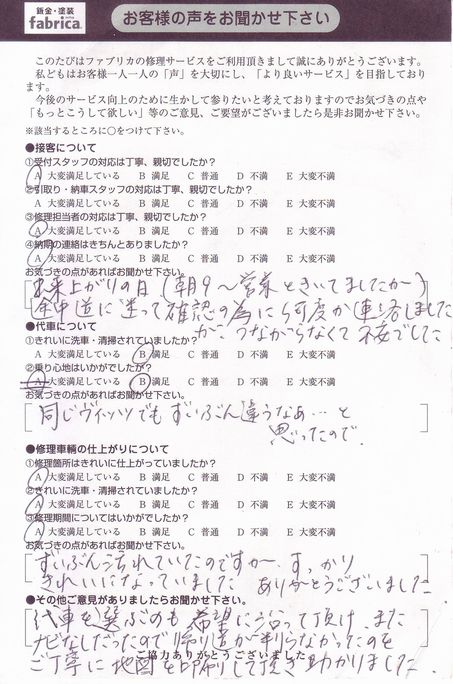 鈑金・塗装
fabrica.
お客様の声をお聞かせ下さい
このたびはファブリカの修理サービスをご利用頂きまして誠にありがとうございます。
私どもはお客様一人一人の「声」を大切にし、「より良いサービス」を目指しており
ます。
今後のサービス向上のために生かして参りたいと考えておりますのでお気づきの点や
「もっとこうして欲しい」等のご意見、ご要望がございましたら是非お聞かせ下さい。
※該当するところに〇をつけて下さい。
●接客について
①受付スタッフの対応は丁寧、親切でしたか?
A 大変満足している B 満足 C 普通 D 不満 E 大変不満
②引取り・納車スタッフの対応は丁寧、親切でしたか?
A 大変満足している B 満足 C 普通 D 不満 E 大変不満
③修理担当者の対応は丁寧、親切でしたか?
A 大変満足している B 満足 C 普通 D 不満 E 大変不満
④納期の連絡はきちんとありましたか?
A 大変満足している B 満足 C 普通 D 不満 E 大変不満
お気づきの点があればお聞かせ下さい。
出来上がりの日(朝9〜営業ときいてましたが)
途中道に迷って確認の為に何度か連絡しました
が、つながらなくて不安でした
●代車について
①きれいに洗車・清掃されていましたか?
A 大変満足している B 満足 C 普通 D 不満 E 大変不満
②乗り心地はいかがでしたか?
A 大変満足している B 満足 C 普通 D 不満 E 大変不満
お気づきの点があればお聞かせ下さい。
同じヴィッツでもずいぶん違うなあ…と
思ったので。
●修理車輌の仕上がりについて
①修理箇所はきれいに仕上がっていましたか?
A 大変満足している B 満足 C 普通 D 不満 E 大変不満
②きれいに洗車・清掃されていましたか?
A 大変満足している B 満足 C 普通 D 不満 E 大変不満
③修理期間についてはいかがでしたか?
A 大変満足している B 満足 C 普通 D 不満 E 大変不満
お気づきの点があればお聞かせ下さい。
ずいぶん汚れていたのですが、すっかり
きれいになっていました ありがとうございました
●その他ご意見がありましたらお聞かせ下さい。
代車を選ぶのも希望に沿って頂け、また
ナビなしだったので帰り道が判らなかったのを
ご丁寧に地図を印刷して頂き助かりました。
ご協力ありがとうございました